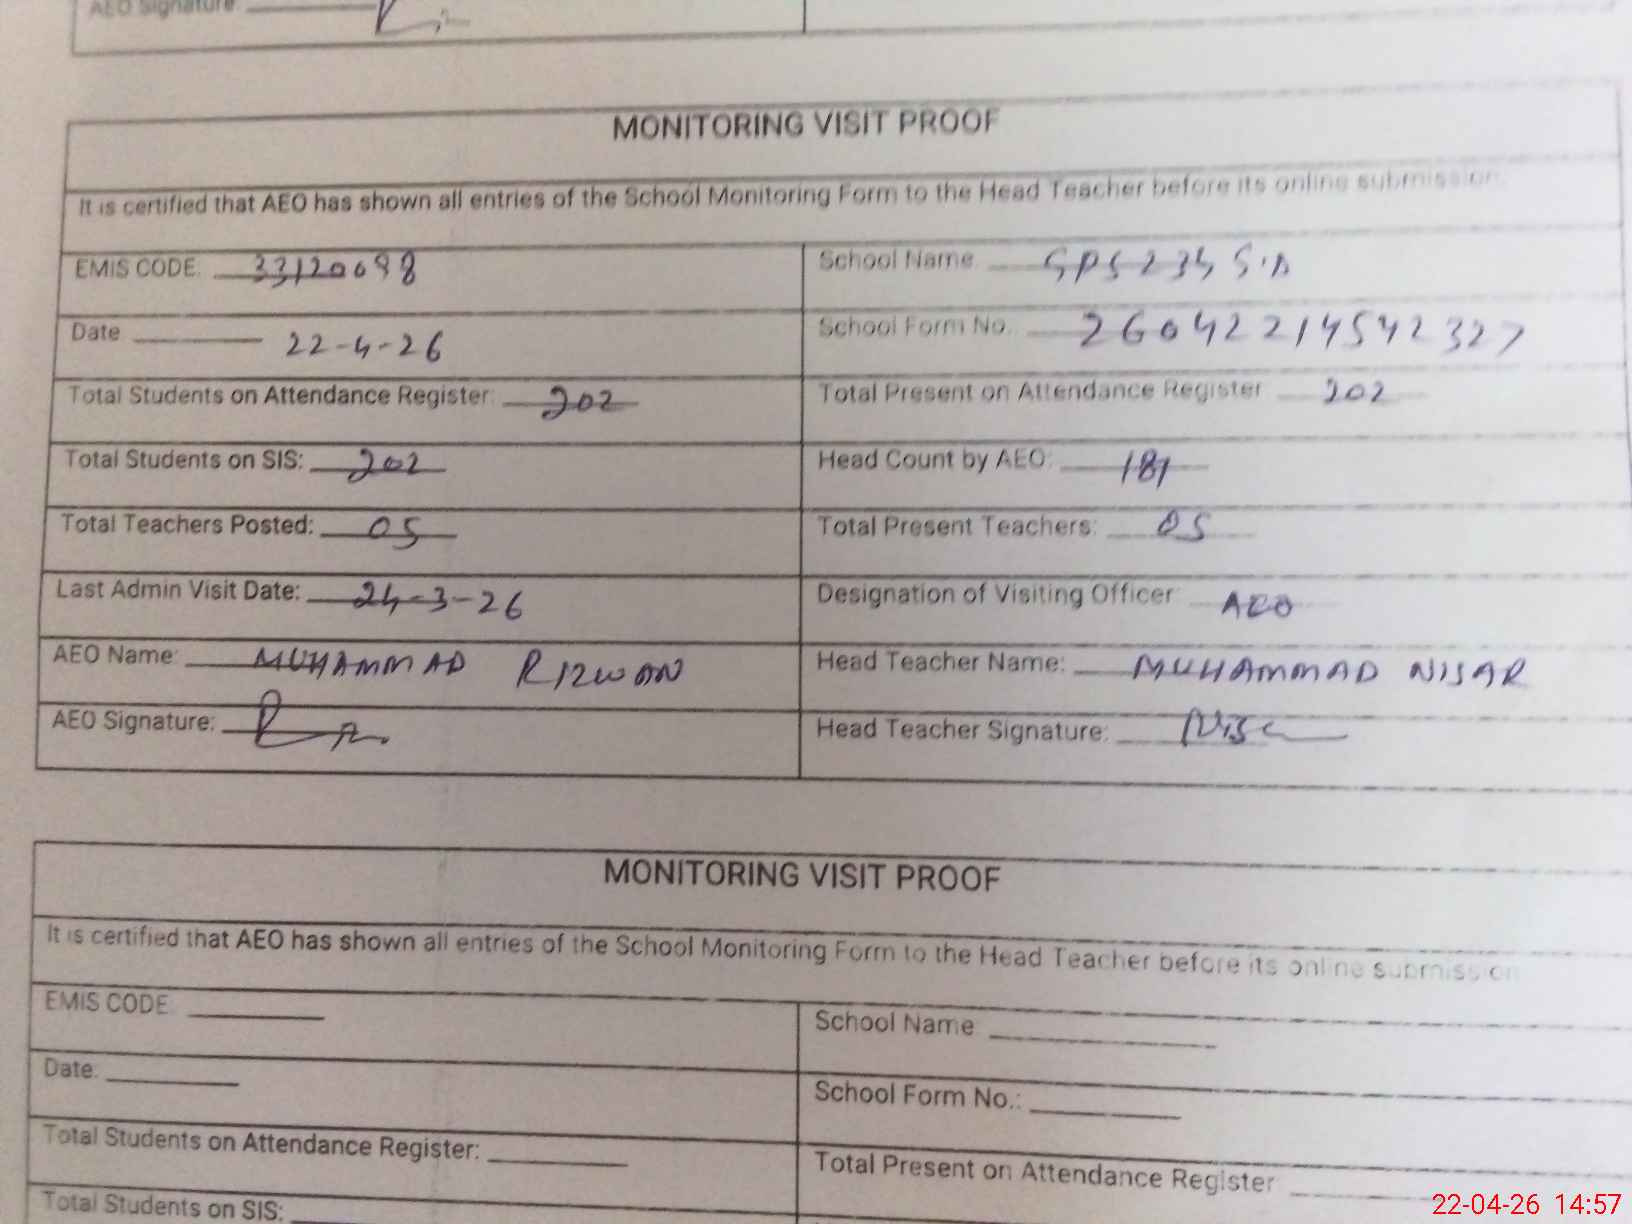 AEO Signature:
MONITORING VISIT PROOF
It is certified that AEO has shown all entries of the School Monitoring Form to the Head Teacher before its online submission.
EMIS CODE: 33120698
School Name GPS 234 S.D
Date 22-4-26
School Form No. 26042214542327
Total Students on Attendance Register: 202
Total Present on Attendance Register 202
Total Students on SIS: 202
Head Count by AEO: 181
Total Teachers Posted: 05
Total Present Teachers: 05
Last Admin Visit Date: 24-3-26
Designation of Visiting Officer AEO
AEO Name: MUHAMMAD RIZWAN
Head Teacher Name: MUHAMMAD NISAR
AEO Signature:
Head Teacher Signature: Nisar
MONITORING VISIT PROOF
It is certified that AEO has shown all entries of the School Monitoring Form to the Head Teacher before its online submission
EMIS CODE
School Name
Date:
School Form No.:
Total Students on Attendance Register:
Total Present on Attendance Register
Total Students on SIS:
22-04-26 14:57